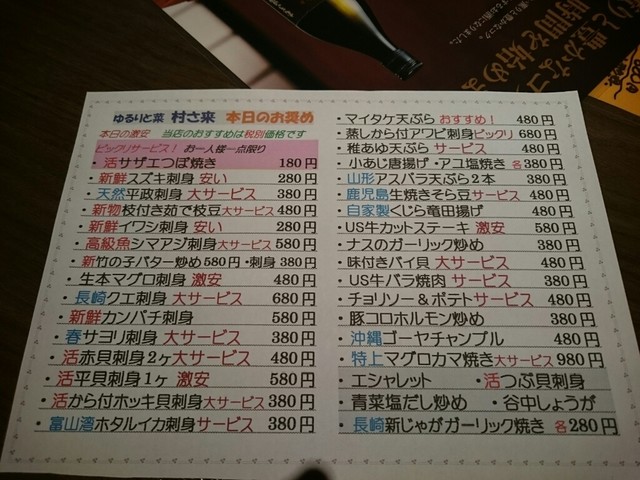 ゆるりと菜 村さ来 本日のお奨め
本日の激安 当店のおすすめは税別価格です
ビックリサービス! お一人様一点限り
・活サザエつぼ焼き 180円
・新鮮スズキ刺身 安い 280円
・天然平政刺身 大サービス 380円
・新物枝付き茹で枝豆大サービス 480円
・新鮮イワシ刺身 安い 280円
・高級魚シマアジ刺身大サービス 580円
・新竹の子バター炒め580円・刺身 380円
・生本マグロ刺身 激安 480円
・長崎クエ刺身 大サービス 680円
・新鮮カンパチ刺身 580円
・春サヨリ刺身 大サービス 380円
・活赤貝刺身2ヶ大サービス 480円
・活平貝刺身1ヶ 激安 580円
・活から付ホッキ貝刺身大サービス 380円
・富山湾ホタルイカ刺身サービス 380円
・マイタケ天ぷら おすすめ! 480円
・蒸しから付アワビ刺身ビックリ 680円
・稚あゆ天ぷら サービス 480円
・小あじ唐揚げ・アユ塩焼き 各380円
・山形アスパラ天ぷら2本 380円
・鹿児島生焼きそら豆サービス 480円
・自家製くじら竜田揚げ 480円
・US牛カットステーキ 激安 580円
・ナスのガーリック炒め 380円
・味付きバイ貝 大サービス 480円
・US牛バラ焼肉 サービス 380円
・チョリソー&ポテトサービス 480円
・豚コロホルモン炒め 380円
・沖縄ゴーヤチャンプル 480円
・特上マグロカマ焼き大サービス 980円
・エシャレット ・活つぶ貝刺身
・青菜塩だし炒め ・谷中しょうが
・長崎新じゃがガーリック焼き 各280円